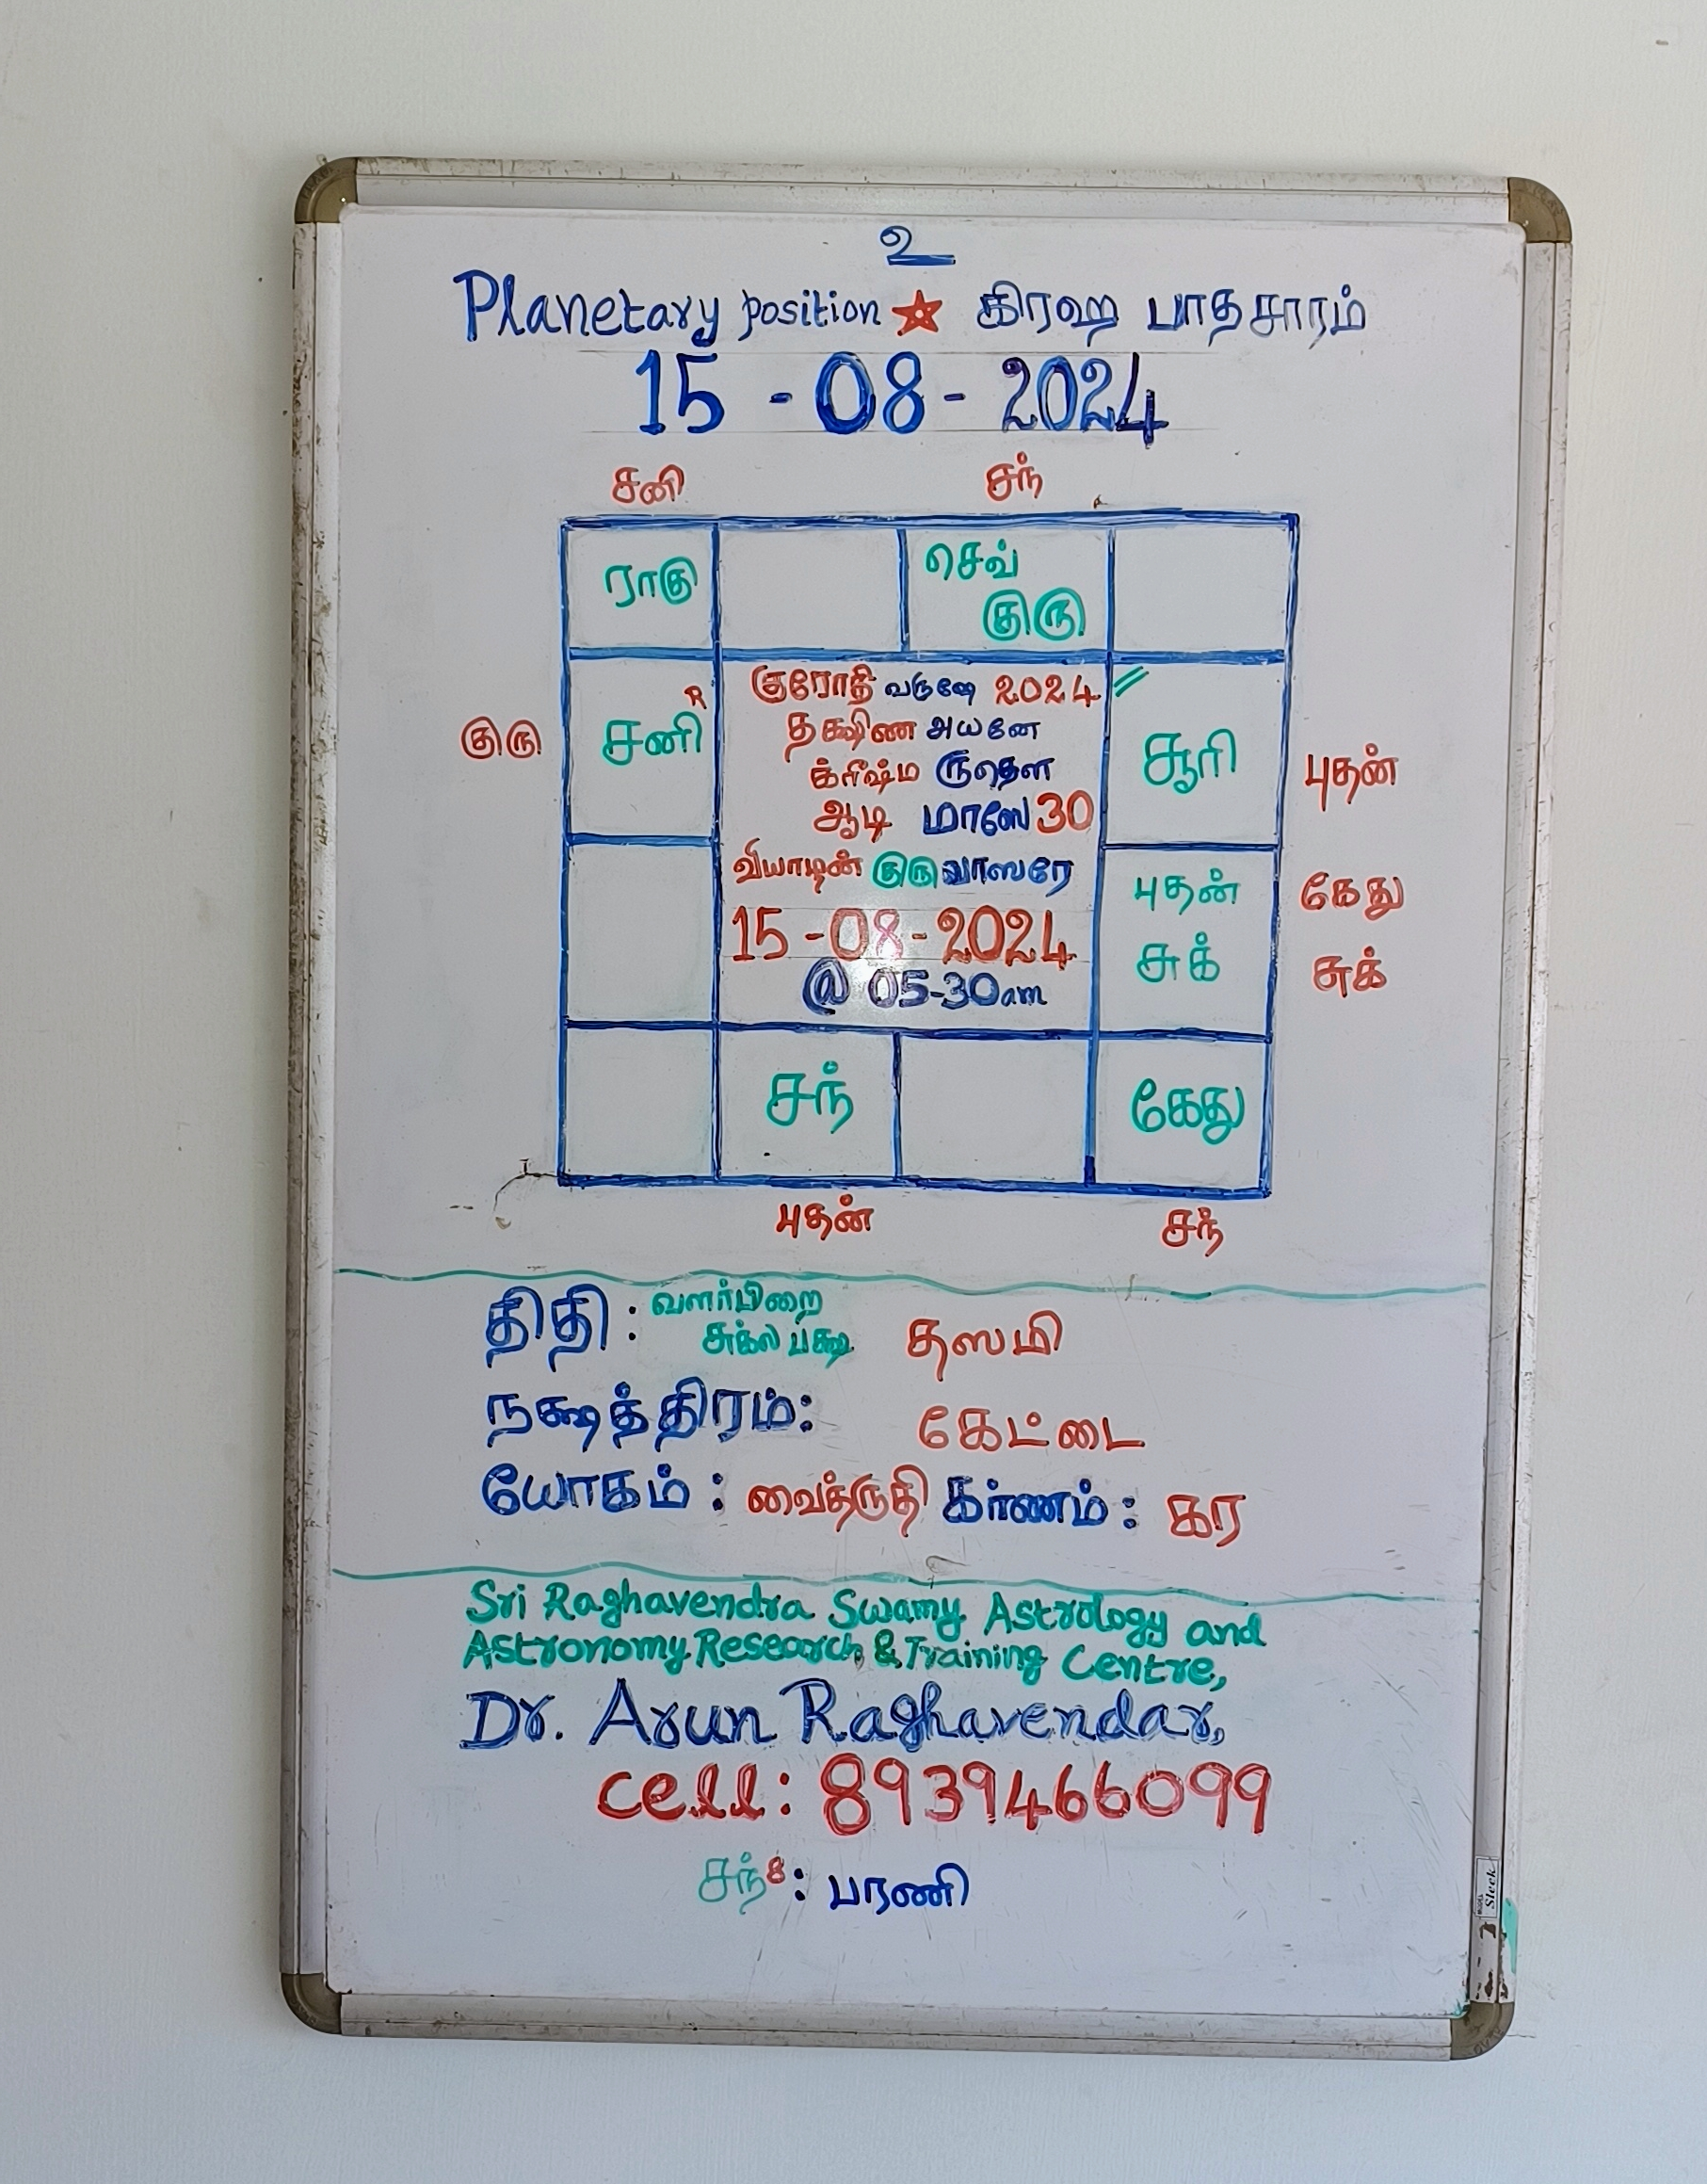 உ
Planetary position ★ கிரஹ பாதசாரம்
15 - 08 - 2024
சனி சந்
ராகு செவ்
குரு
குரோதி வருஷே 2024
தக்ஷிண அயனே
க்ரீஷ்ம ருதௌ
ஆடி மாஸே 30
வியாழன் குரு வாஸரே
15 - 08 - 2024
@ 05-30am
குரு சனி R சூரி புதன்
புதன் கேது
சுக் சுக்
சந் கேது
புதன் சந்
திதி : வளர்பிறை
சுக்ல பக்ஷ தஸமி
நக்ஷத்திரம்: கேட்டை
யோகம் : வைத்ருதி கர்ணம் : கர
Sri Raghavendra Swamy Astrology and
Astronomy Research & Training Centre,
Dr. Arun Raghavendar,
cell: 8939466099
சந் 8 : பரணி
Sleek